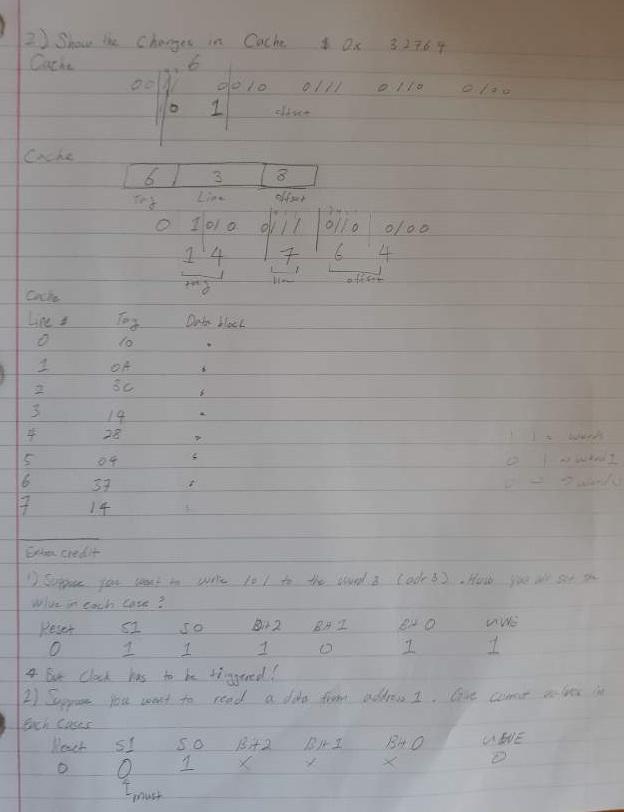 2) Show the Changes in Cache $ 0x 32764
Cache 6
00 11 0010 0111 0110 0100
0 1 offset
Cache
6 3 8
Tag Line offset
0 1010 0111 0110 0100
1 4 7 6 4
tag line offset
Cache
Line # Tag Data block
0 10
1 0A
2 3C
3 19
4 28
5 04
6 37
7 14
1 1 = word
0 1 → word 1
0 → word 0
Extra credit
1) Suppose you want to write 101 to the word 3 (adr 3). How you will set the
value in each case?
Reset S1 S0 Bit2 Bit 1 Bit 0 WE
0 1 1 1 0 1 1
* But Clock has to be triggered!
2) Suppose you want to read a data from address 1. Give correct values in
Each cases
Reset S1 S0 Bit2 Bit 1 Bit 0
0 0 1 x x x 0
must